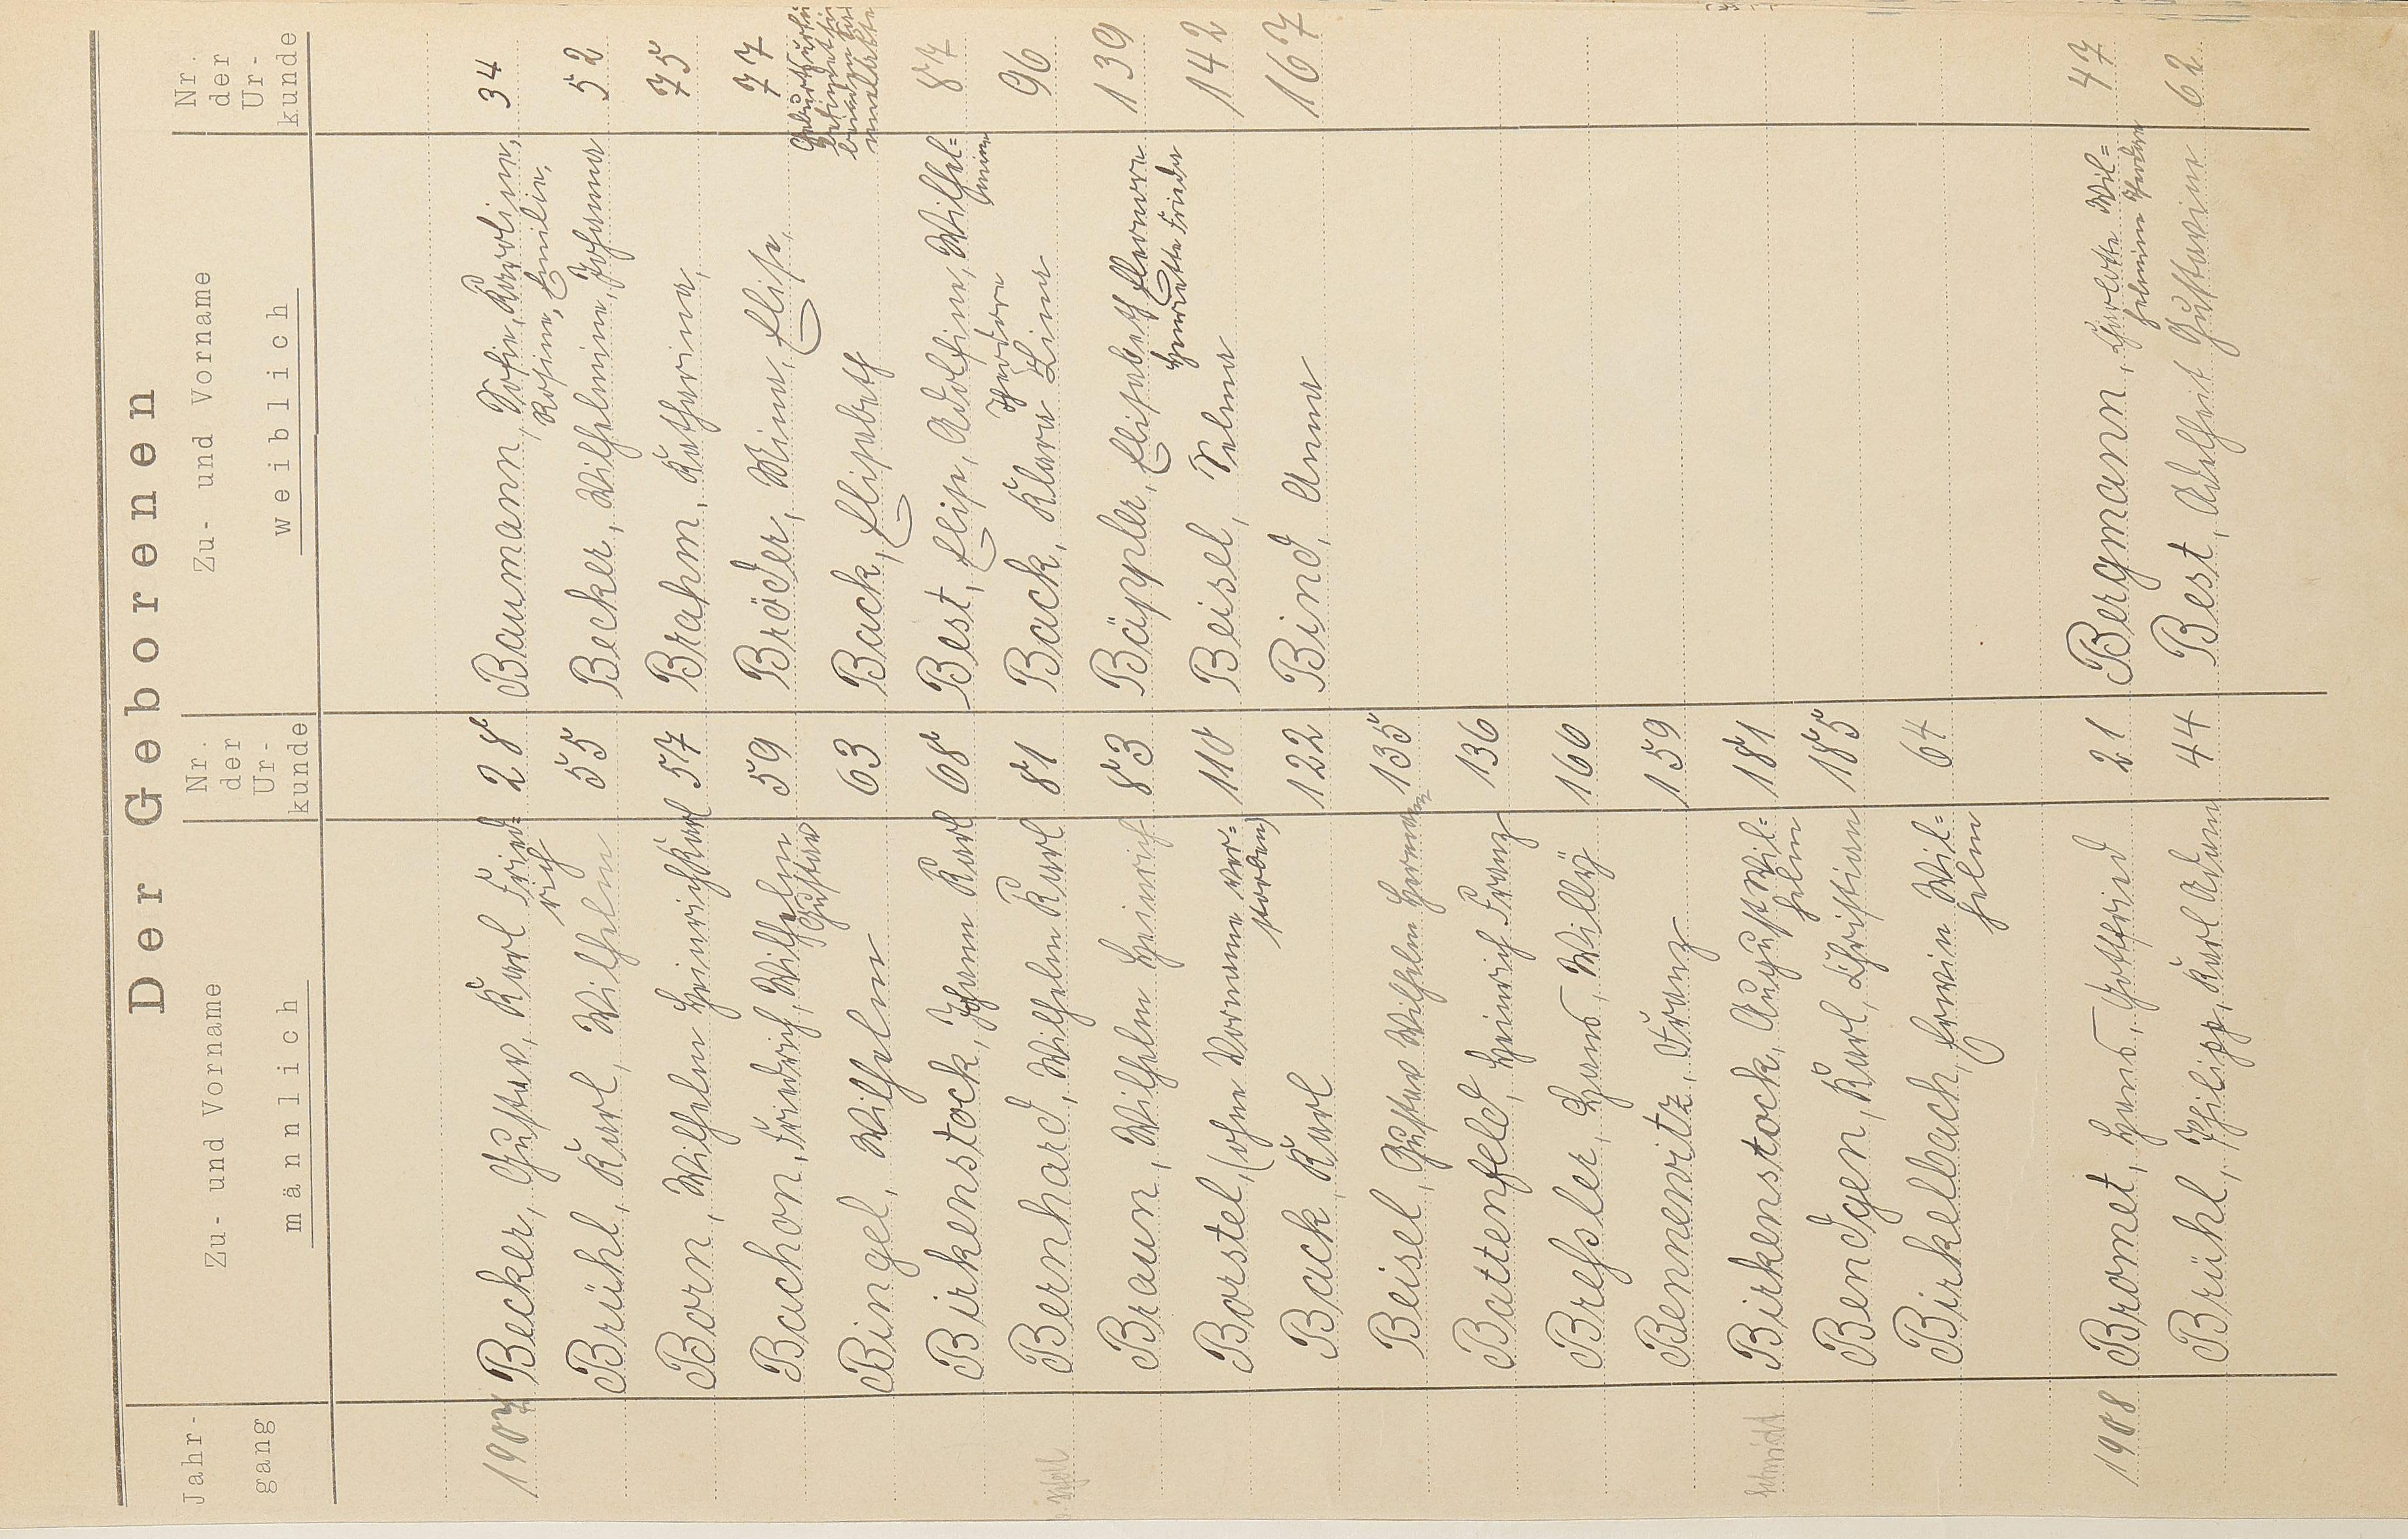 Der Geborenen
Jahr-gang | Zu- und Vorname männlich | Nr. der Ur-kunde | Zu- und Vorname weiblich | Nr. der Ur-kunde
1907 Becker, Gustav, Karl Fried=rich 28 Baumann, Sofie, Karoline, Rosine, Emilie, 34
Brühl, Karl, Wilhelm 55 Becker, Wilhelmine, Johanna 52
Born, Wilhelm Heinrich Karl 57 Brahm, Katharina, 75
Bachon, Friedrich, Wilhelm Gustav 59 Bröder, Minna, Elise, 77
Bingel, Wilhelm 63 Back, Elisabeth
Birkenstock, Johann Karl 68 Best, Elise, Adolfine, Wilhel=mine Theodore 87
Bernhard, Wilhelm Karl 81 Back, Klara Lina 96
Braun, Wilhelm Heinrich 83 Bäppler, Elisabeth Eleonore Henriette Frieda 139
Borstel, (ohne Vorname ver=storben) 110 Beisel, Selma 142
Back, Karl 122 Bind, Anna 167
Beisel, Gustav Wilhelm Herman 135
Battenfeld, Heinrich Franz 136
Breßler, Hans, Willy 160
Bennewitz, Franz 159
Birkenstock, August Wil=helm 181
Bendgen, Karl, Christian 185
Birkelbach, Erwin Wil=helm 64
1908 Bromet, Hans, Gottfried 21 Bergmann, Charlotte Wil=helmine 47
Brühl, Philipp, Karl Adam 44 Best, Adelheit Gustavine 62